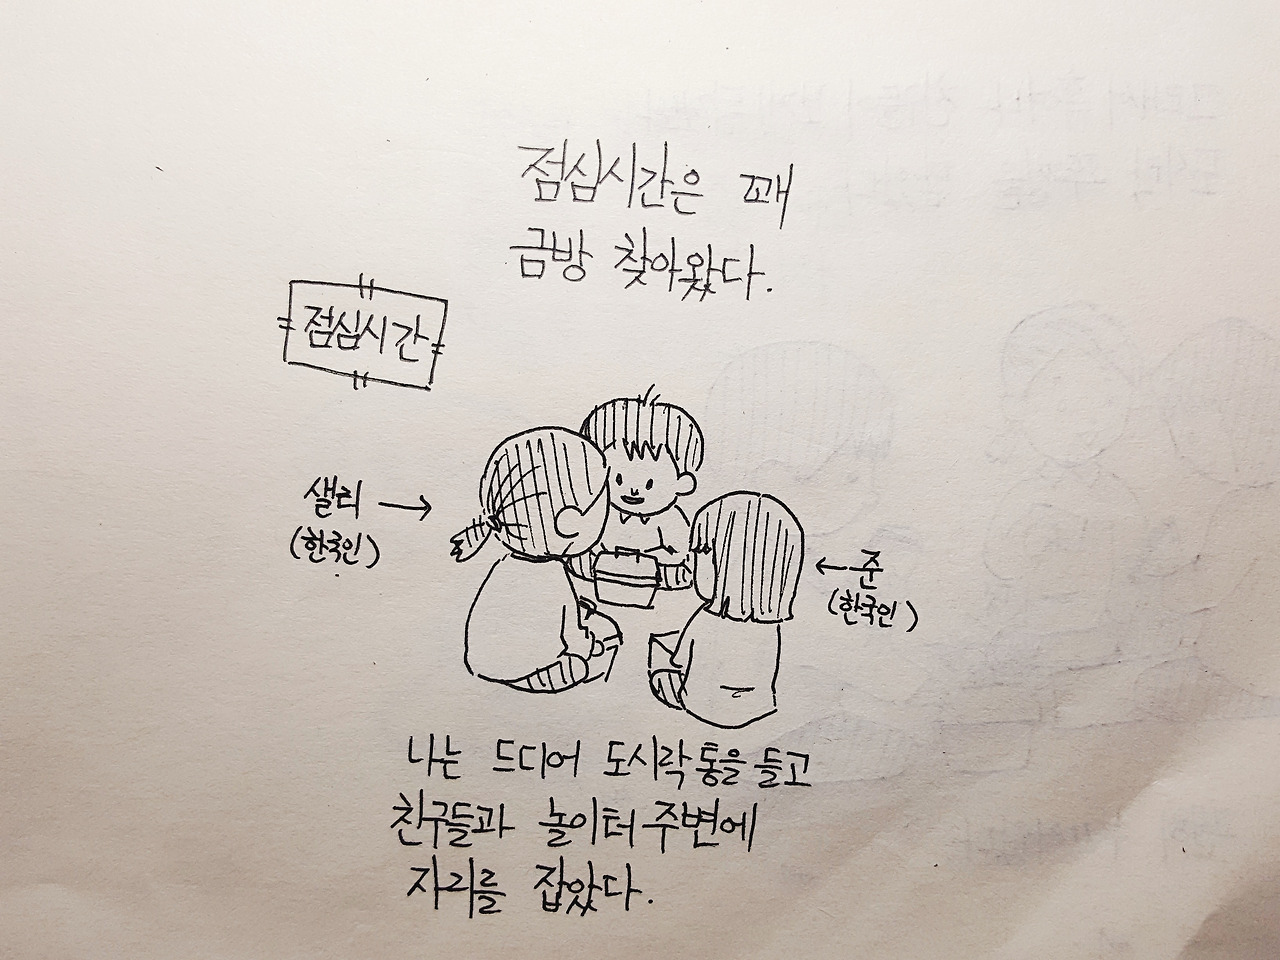 점심시간은 꽤
금방 찾아왔다.
점심시간
샐리
(한국인)
준
(한국인)
나는 드디어 도시락통을 들고
친구들과 놀이터 주변에
자리를 잡았다.